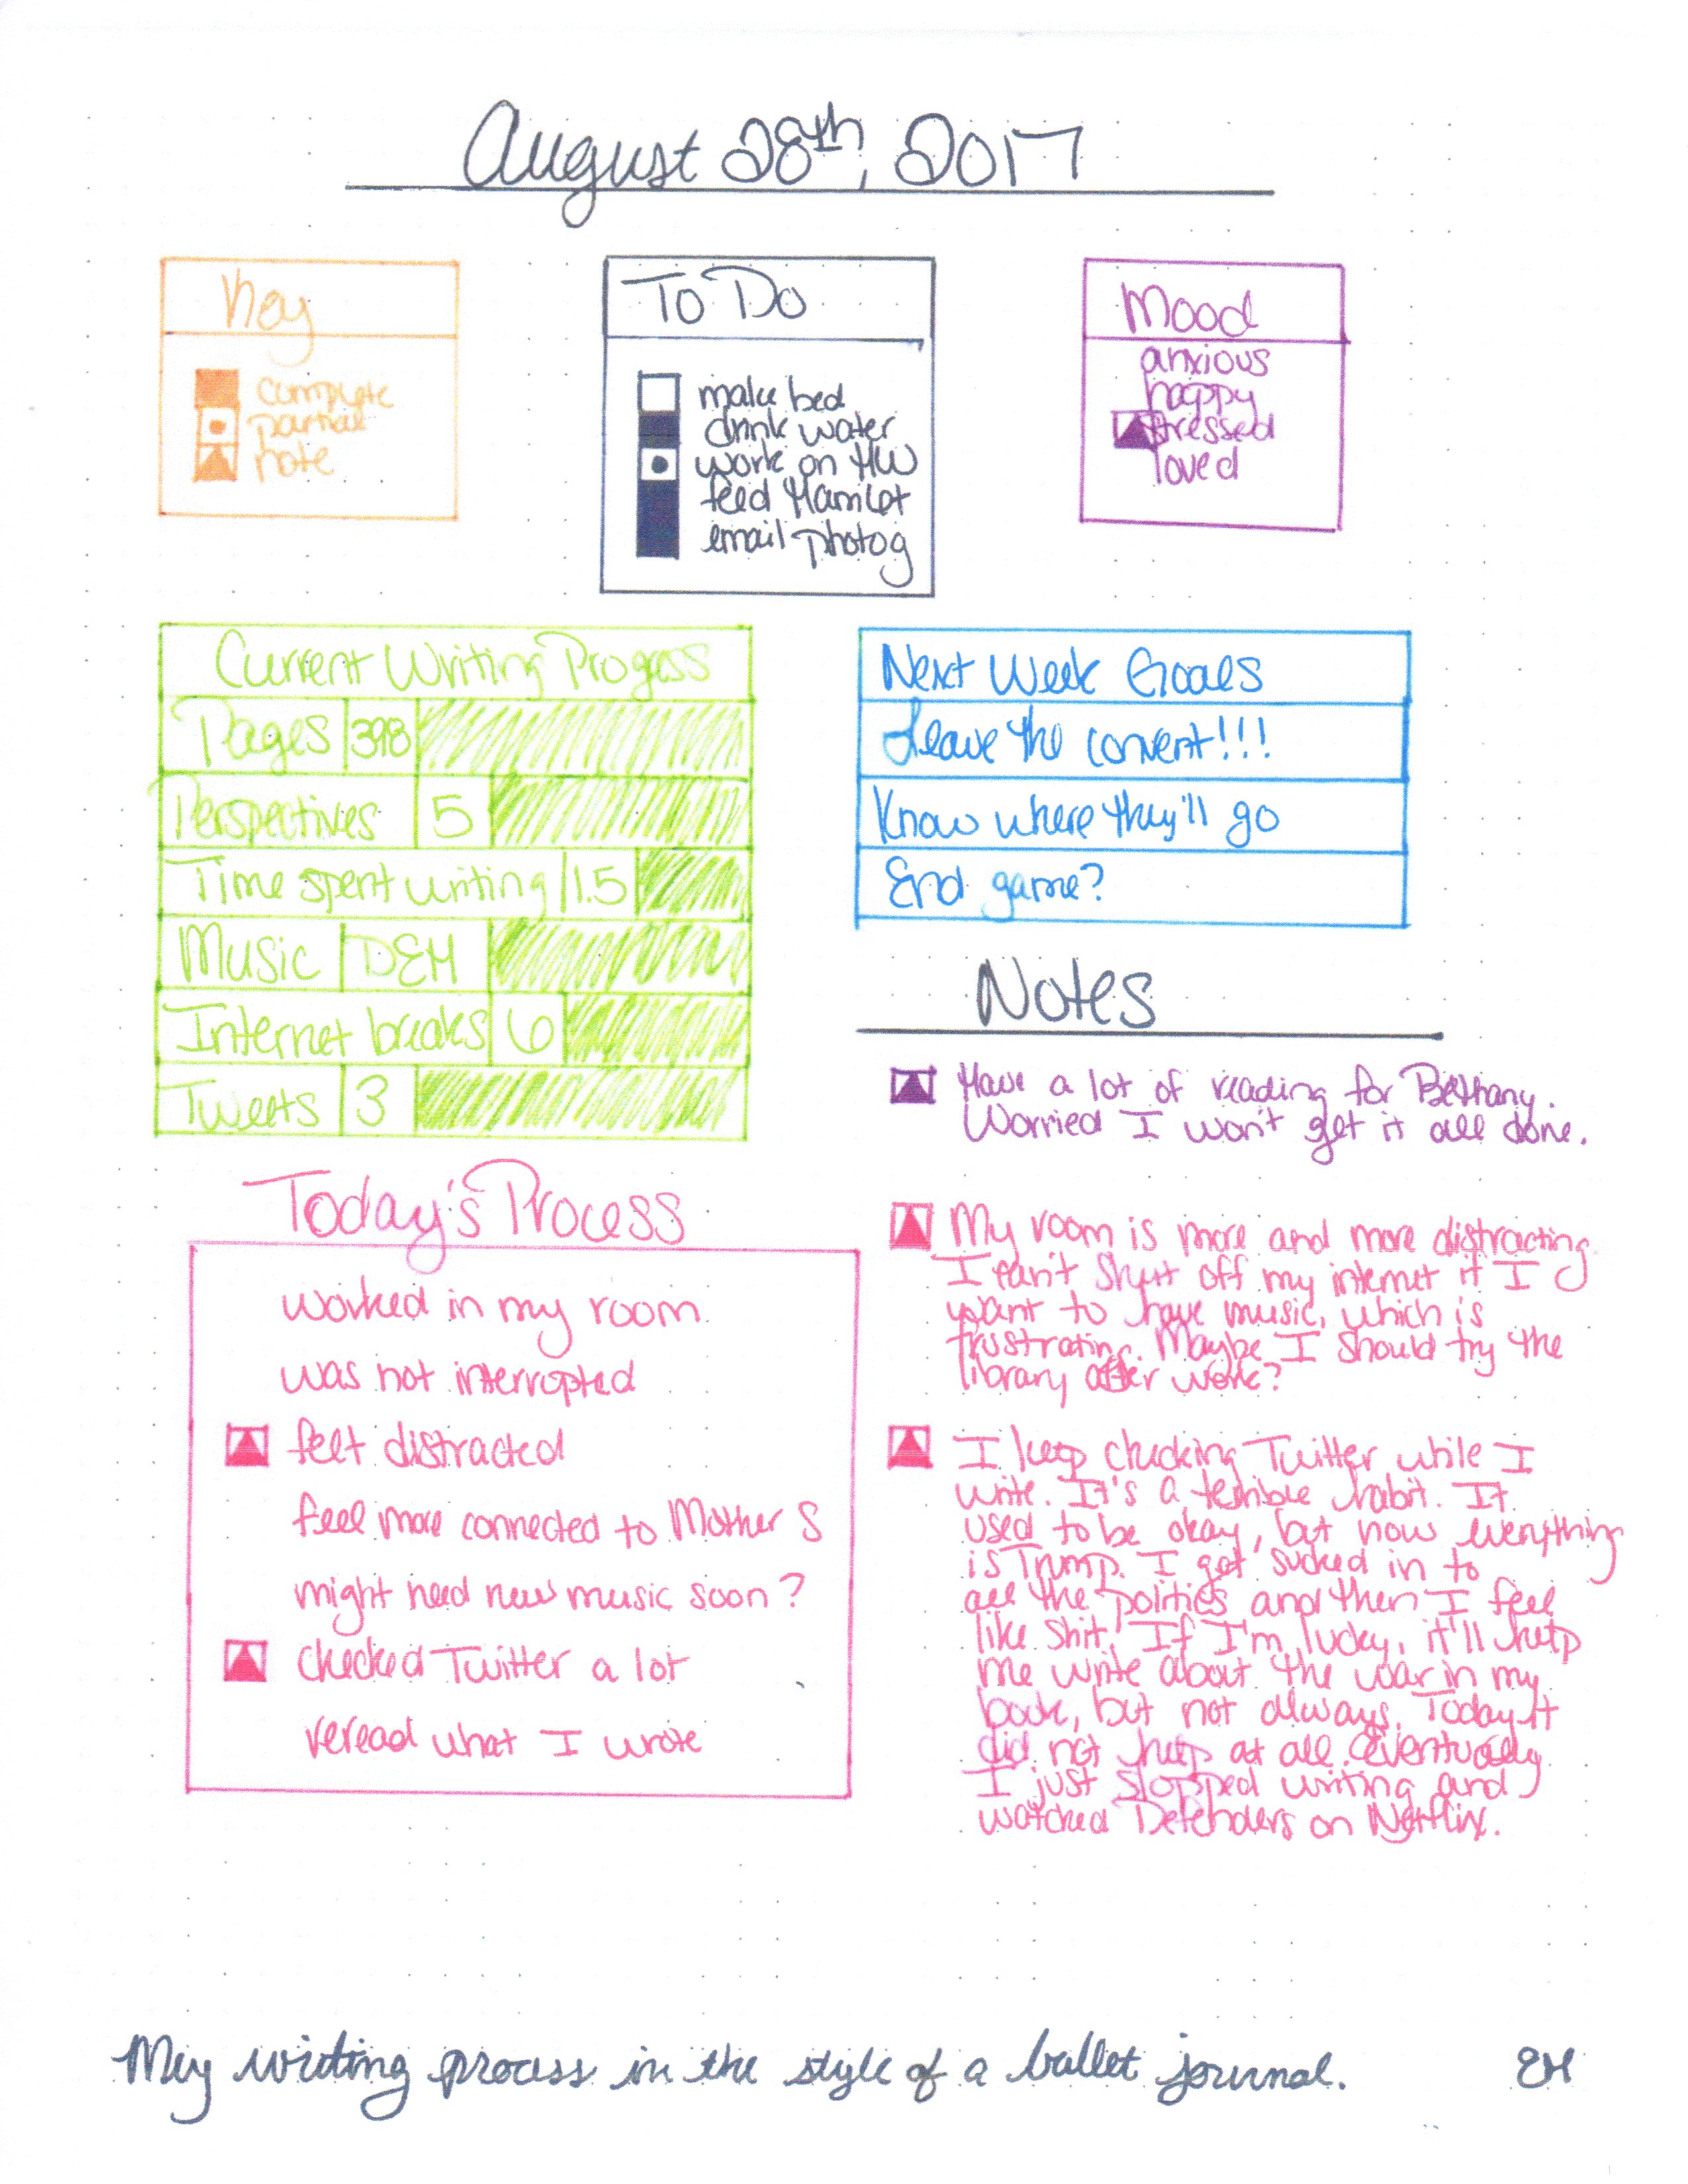 August 28th, 2017
Key
complete
partial
note
To Do
make bed
drink water
work on HW
feed Hamlet
email photog
Mood
anxious
happy
stressed
loved
Current Writing Progress
Pages 398
Perspectives 5
Time spent writing 1.5
Music DEH
Internet breaks 6
Tweets 3
Next Week Goals
Leave the convent!!!
Know where they'll go
End game?
Today's Process
worked in my room
was not interrupted
felt distracted
feel more connected to Mother S
might need new music soon?
checked Twitter a lot
reread what I wrote
Notes
Have a lot of reading for Bethany.
Worried I won't get it all done.
My room is more and more distracting.
I can't shut off my internet if I
want to have music, which is
frustrating. Maybe I should try the
library after work?
I keep checking Twitter while I
write. It's a terrible habit. It
used to be okay, but now everything
is Trump. I get sucked in to
all the politics and then I feel
like shit. If I'm lucky, it'll help
me write about the war in my
book, but not always. Today it
did not help at all. Eventually
I just stopped writing and
watched Defenders on Netflix.
My writing process in the style of a bullet journal. EH